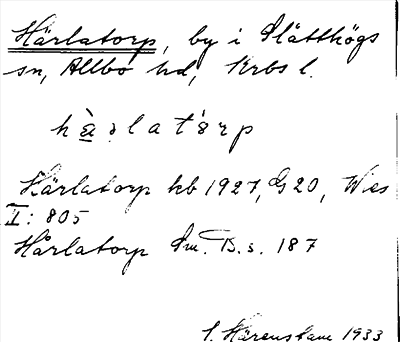 Härlatorp, by i Slätthögs
sn, Allbo hd, Krbs l.
hà̤rlatórp
Härlatorp kb 1927, G 20, Wies
II: 805
Hårlatorp Sm. B. s. 187
1933